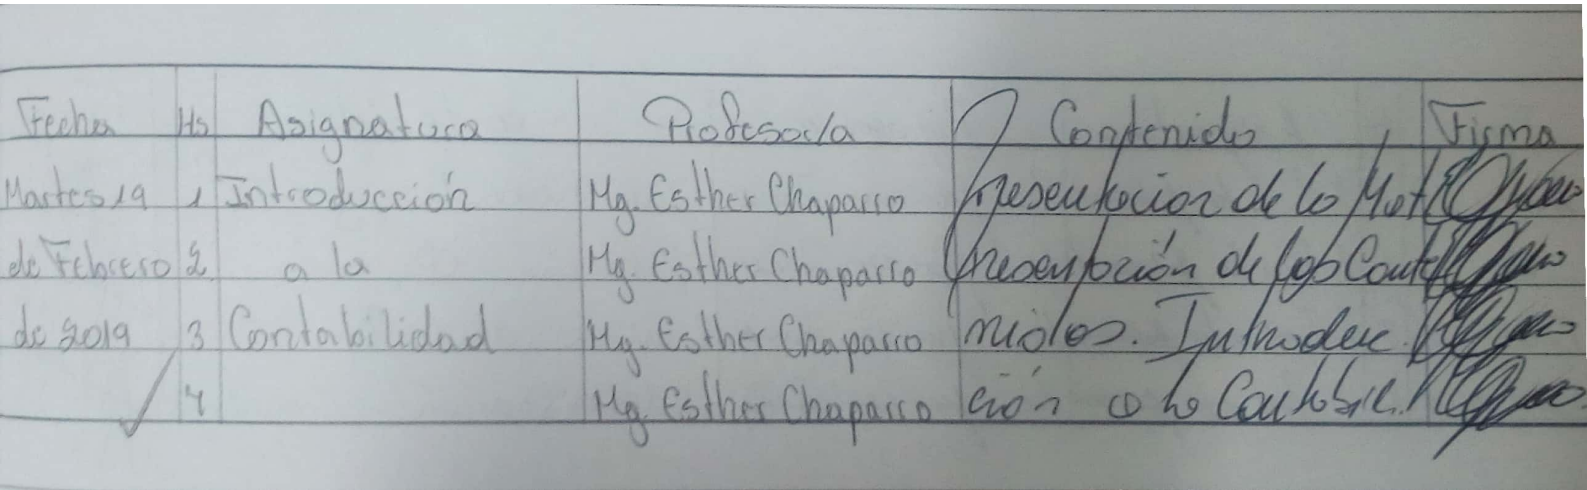 Fecha Hs Asignatura Profesor/a Contenido Firma
Martes 19 1 Introducción Mg. Esther Chaparro Presentacion de la Mat
de Febrero 2 a la Mg. Esther Chaparro Presentación de los Conte
de 2019 3 Contabilidad Mg. Esther Chaparro nidos. Introduc
4 Mg. Esther Chaparro ción a la